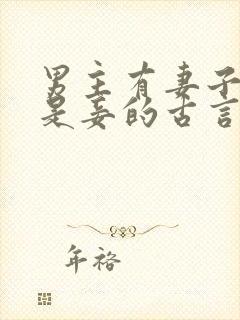 男主有妻子
是妾的古言
年袼